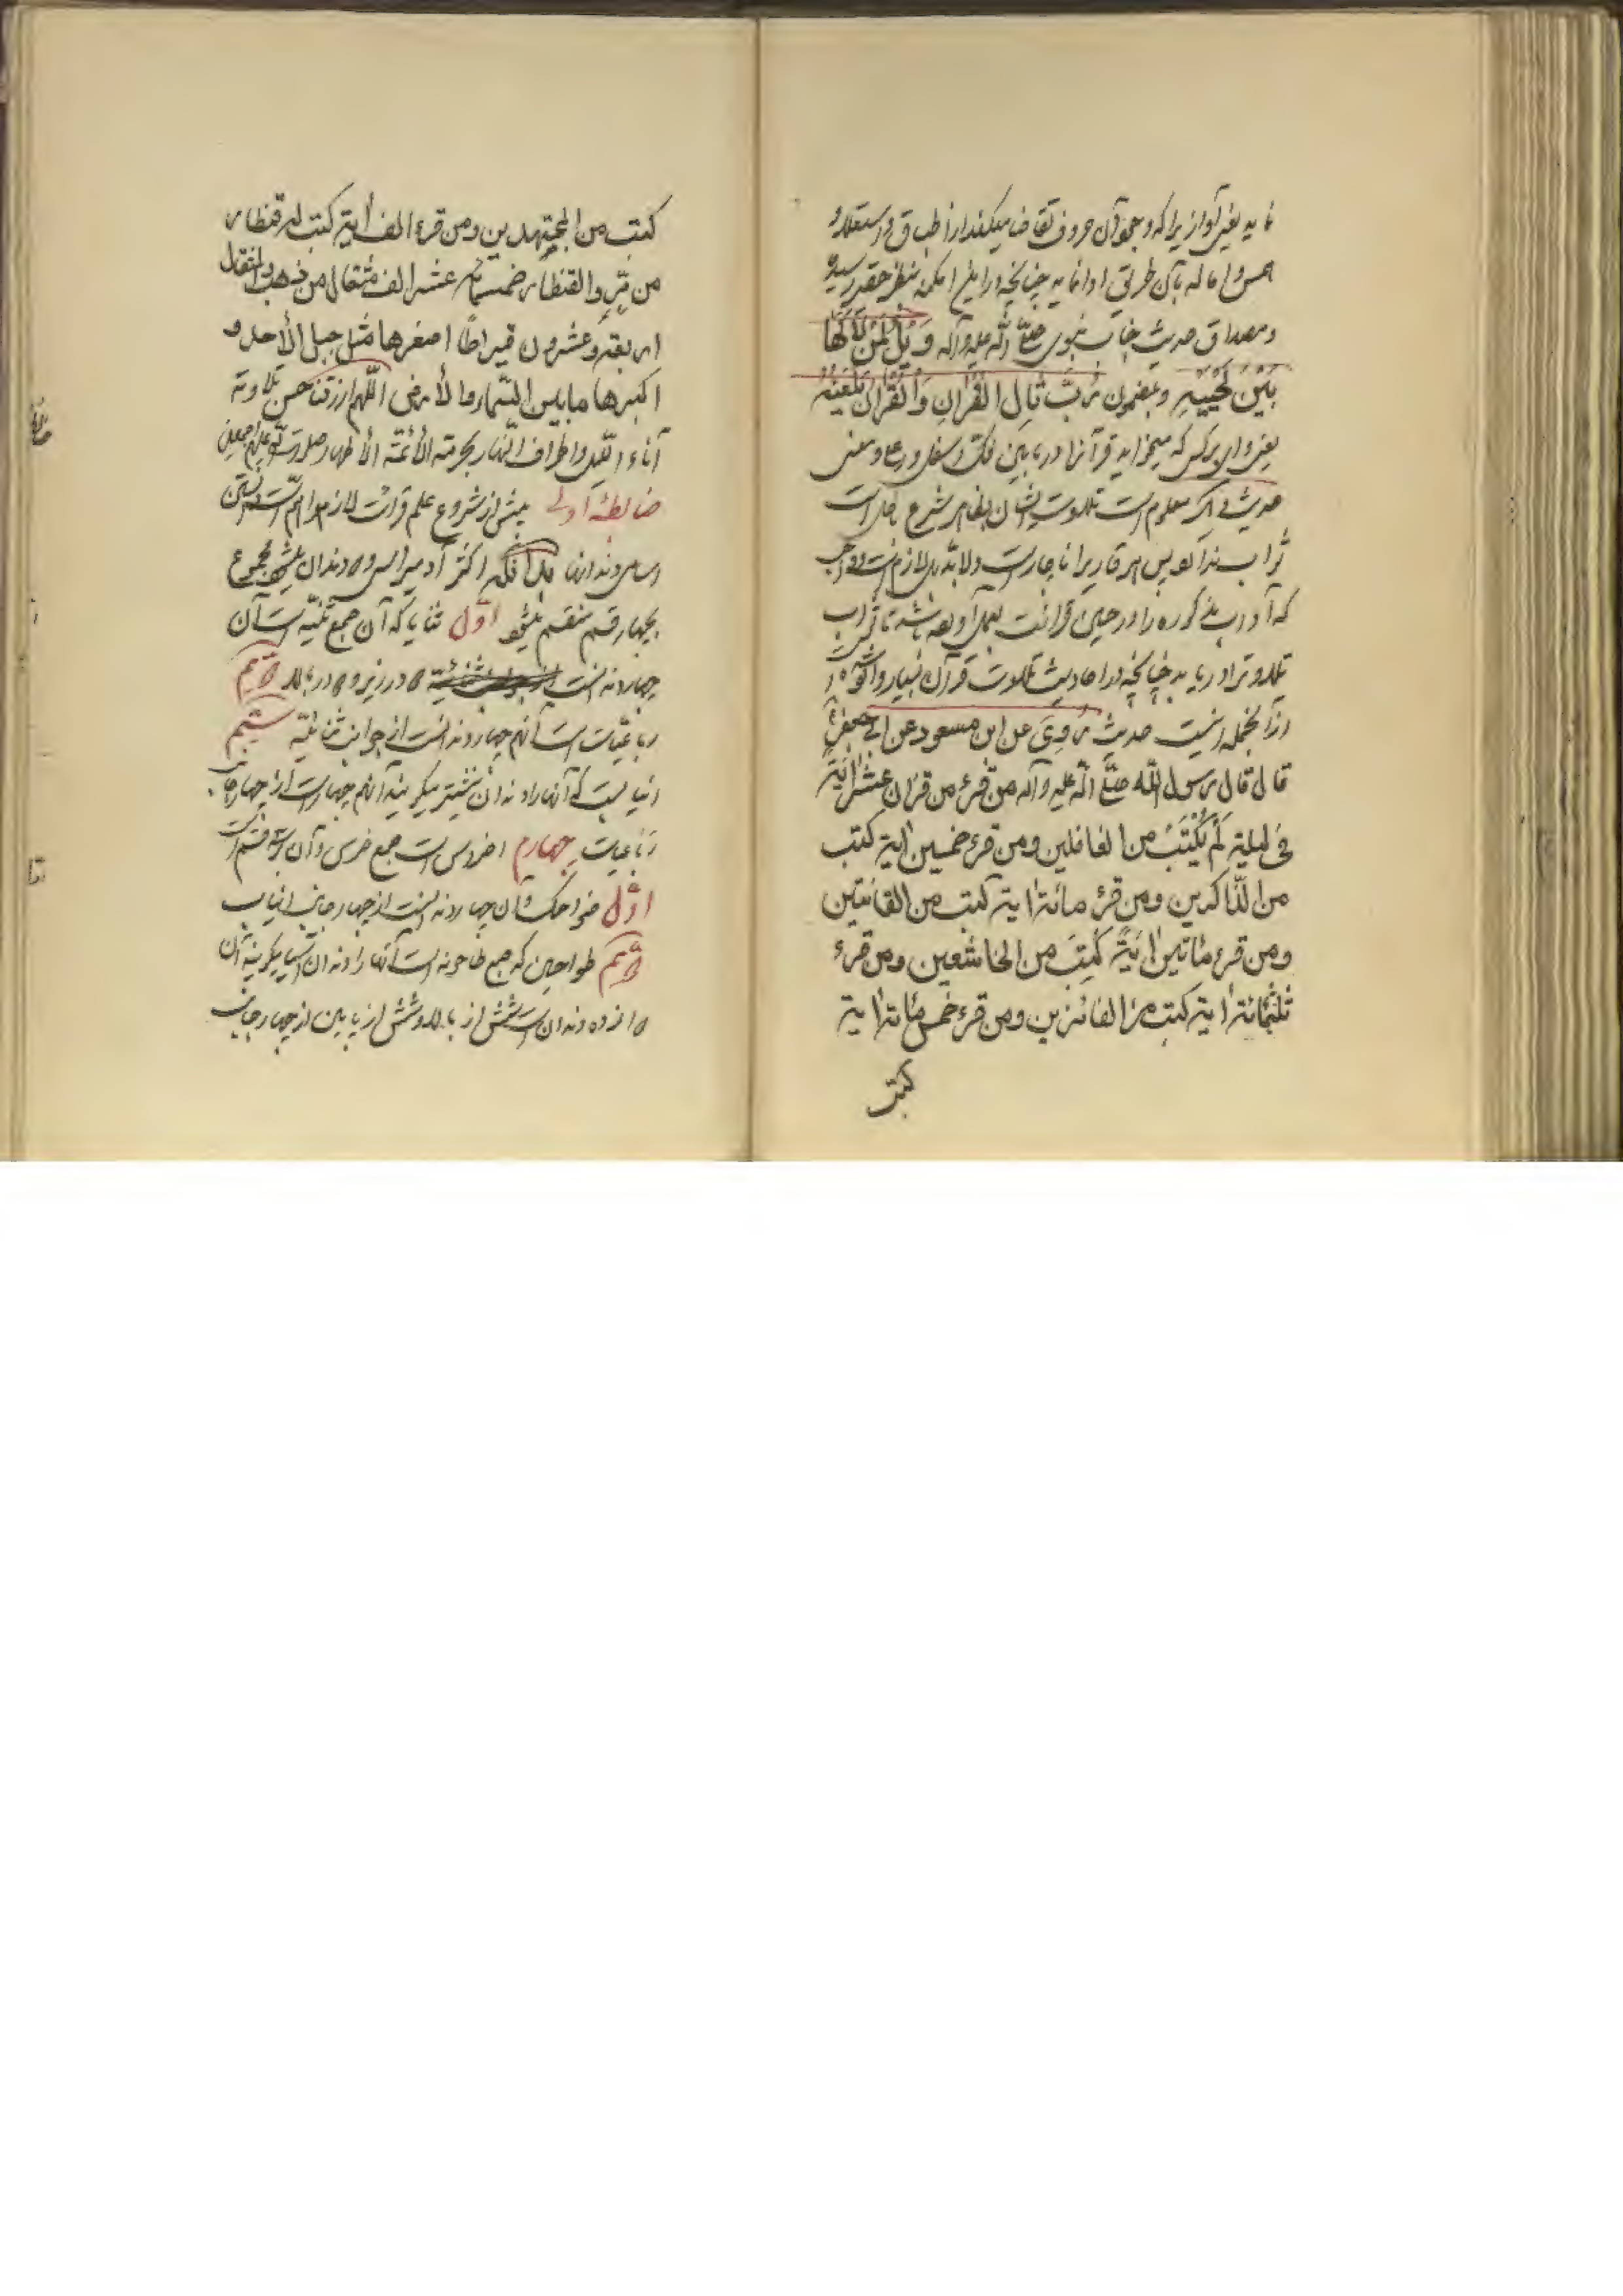 نماید بغیر آواز زیرا که وجود آن حروف تقاضا میکند از اطباق و استعلا و
همس و اماله بآن طریق ادا نماید چنانچه در این امکنه بنظر حقیر رسیده
و مصداق حدیث جناب نبوی صلی الله علیه وآله وَیْلٌ لِمَنْ لَاکَهَا
بَیْنَ لَحْیَیْهِ و بمضمون رُبَّ تَالِ الْقُرْانِ وَالْقُرْانُ یَلْعَنُهُ
یعنی وای بر کسی که میخواند قرآنرا در مابین فک و معنی
حدیث دیگر معلوم است تلاوت ایشان بظاهر شرع باطل است
ثواب ندارد پس هر قاریرا ناچار است ولابد بل لازم است و واجب
که آداب مذکوره را در حین قرائت بعمل آورده باشد تا ثواب
تلاوترا دریابد چنانچه در احادیث تلاوت قرآن بسیار وارد
از آنجمله اینست حدیث رُوِیَ عن ابن مسعود عن ابی جعفر ع
قال قال رسول الله صلی الله علیه وآله من قرء من قران عشر اٰیَةً
فی لیلة لَمْ یُکْتَبْ من الغافلین ومن قرء خمسین ایة کتب
من الذّاکرین ومن قرء مائة ایة کتب من القانتین
ومن قرء مأتین اٰیَةً کُتِبَ من الخاشعین ومن قرء
ثلثمائة اٰیة کتب من الفائزین ومن قرء خمس مائة ایة
کتب
کتب من المجتهدین ومن قرء الف أیة کتب له قنطار
من تبر والقنطار خمسة عشر الف مثقال من ذهب والمثقال
اربعة وعشرون قیراطا اصغرها مثل جبل الأحد و
اکبرها ما بین السّمآء والأرض اللّهم ارزقنا حسن تلاوته
آناء اللیل واطراف النّهار بحرمة الأئمّة الأطهار صلوات الله علیهم اجمعین
ضابطهٔ اولی پیش از شروع علم قرائت لازم و اهم است دانستن
اسامی دندانها بدانکه اکثر آدمیرا سی و ۲ دندان میشود مجموع
بچهار قسم منقسم میشود اوّل ثنایا که آن جمع ثنیّه است آن
چهار دندانست ۲ در زیر و ۲ در بالا دویّم
رباعیّات است آنهم چهار دندانست از جوانب ثنائیّه سیّم
انیابست که آنها را دندان نیشتر میگویند آنهم چهار است از چهار جانب
رباعیات چهارم اضراس است جمع ضرس و آن بر سه قسم است
اوّل ضواحک و آن چهار دندانست از چهار جانب انیاب
دویّم طواحین که جمع طاحونه است آنها را دندان آسیا میگویند آن
۱۲ دندان است شش از بالا و شش از پایین از چهار جانب